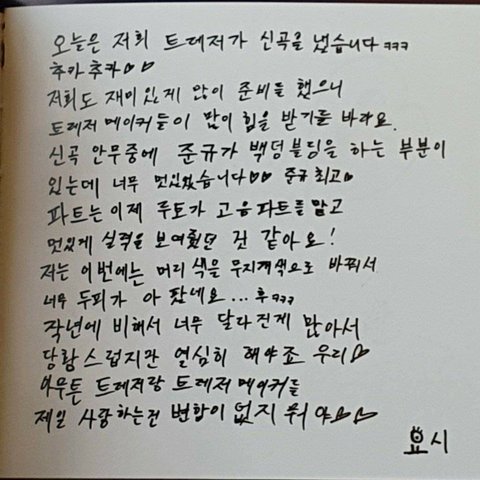 오늘은 저희 트레저가 신곡를 냈습니다ㅋㅋㅋ
추카추카♡♡
저희도 재미있게 많이 준비를 했으니
트레저 메이커들이 많이 힘을 받기를 바라요.
신곡 안무중에 준규가 백덤블딩을 하는 부분이
있는데 너무 멋있었습니다♡♡ 준규 최고♡
파트는 이제 루토가 고음파트를 맡고
멋있게 실력을 보여줬던 것 같아요!
저는 이번에는 머리 색을 무지개색으로 바꿔서
너무 두피가 아팠네요...후ㅋㅋㅋ
작년에 비해서 너무 달라진게 많아서
당황스럽지만 열심히 해야죠 우리♡
아무튼 트레저랑 트레저 메이커들
제일 사랑하는건 변함이 없지 뭐야♡♡
요시